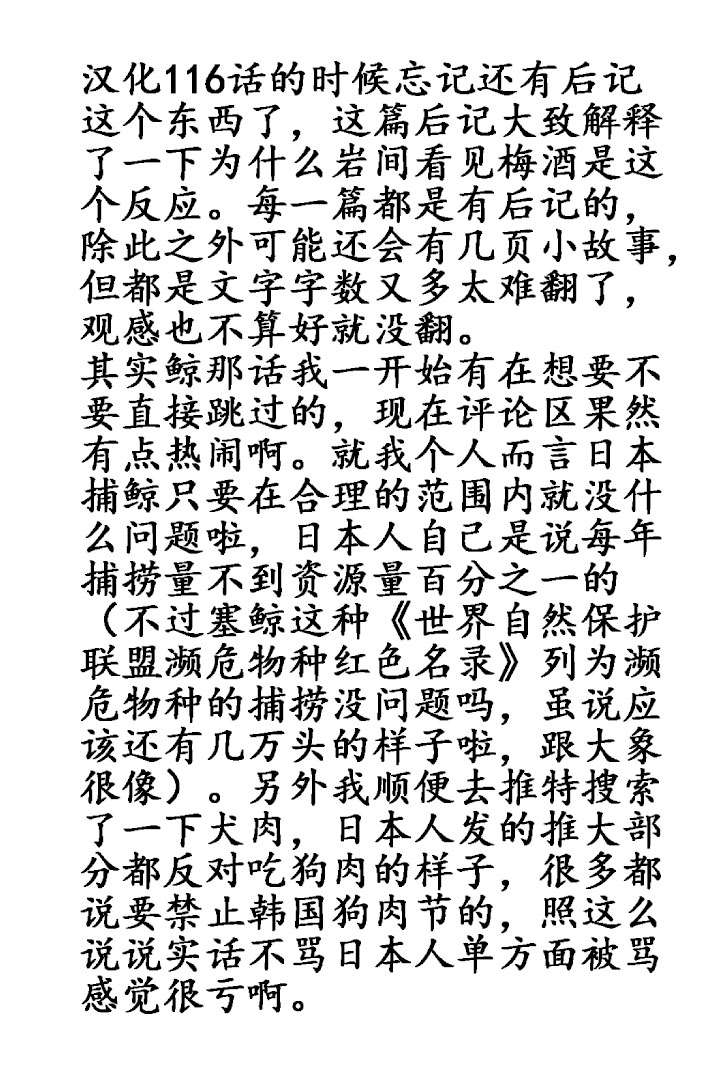 汉化116话的时候忘记还有后记
这个东西了，这篇后记大致解释
了一下为什么岩间看见梅酒是这
个反应。每一篇都是有后记的，
除此之外可能还会有几页小故事，
但都是文字字数又多太难翻了，
观感也不算好就没翻。
其实鲸那话我一开始有在想要不
要直接跳过的，现在评论区果然
有点热闹啊。就我个人而言日本
捕鲸只要在合理的范围内就没什
么问题啦，日本人自己是说每年
捕捞量不到资源量百分之一的
（不过塞鲸这种《世界自然保护
联盟濒危物种红色名录》列为濒
危物种的捕捞没问题吗，虽说应
该还有几万头的样子啦，跟大象
很像）。另外我顺便去推特搜索
了一下犬肉，日本人发的推大部
分都反对吃狗肉的样子，很多都
说要禁止韩国狗肉节的，照这么
说说实话不骂日本人单方面被骂
感觉很亏啊。